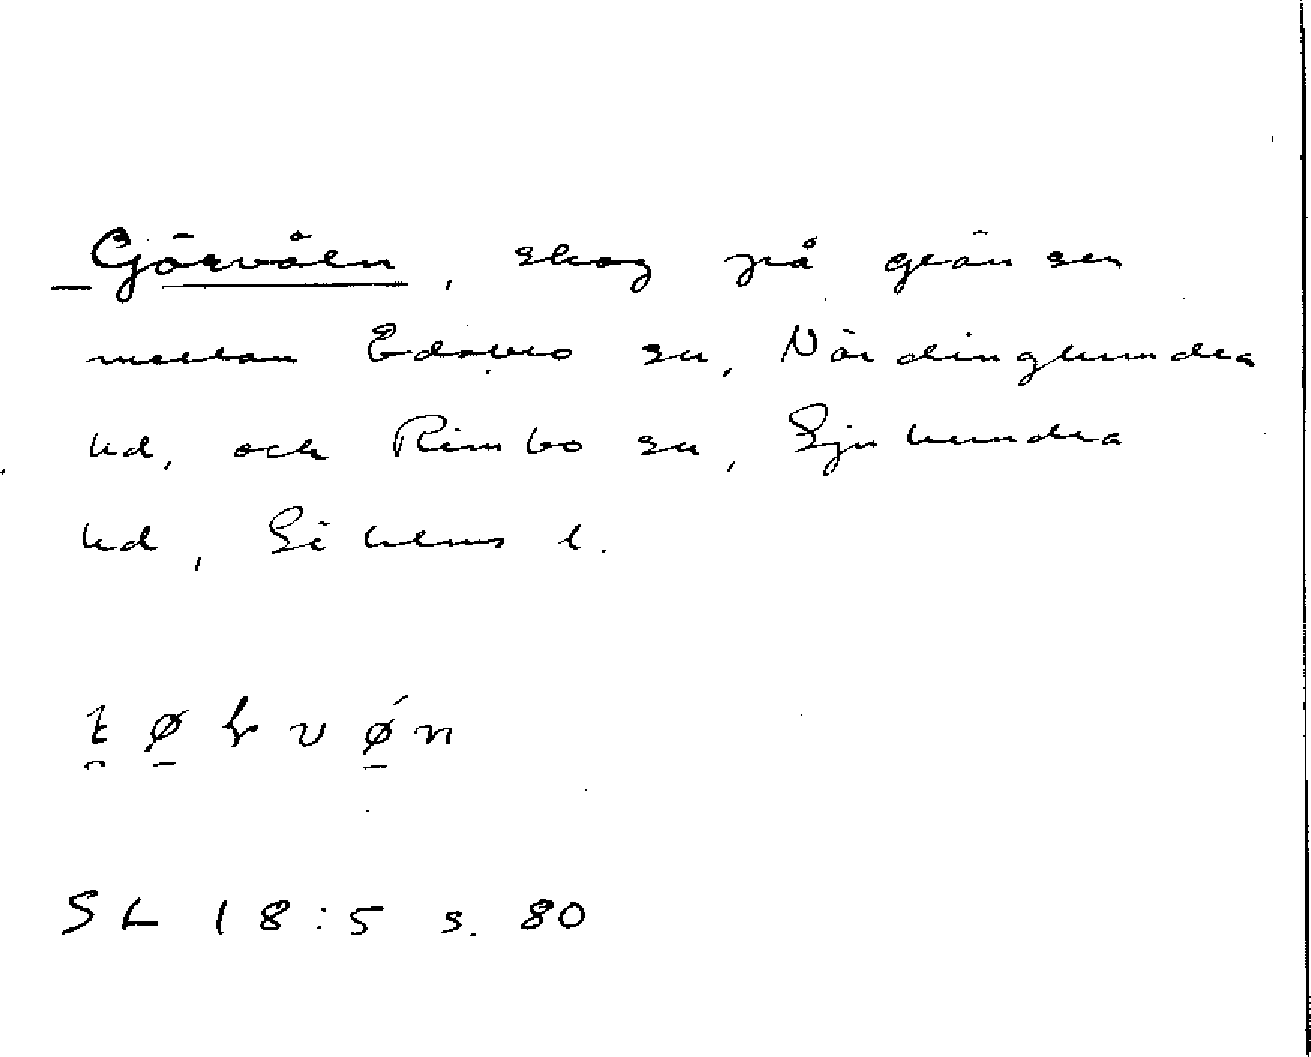 Gjörvåln, skog på gränsen
mellan Edsbro sn, Närdinghundra
hd, och Rimbo sn, Sjuhundra
hd, Sthlms l.
SL 18:5 s. 80